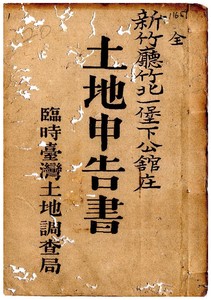 全
新竹廳竹北一堡下公館庄
土地申告書
臨時臺灣土地調查局